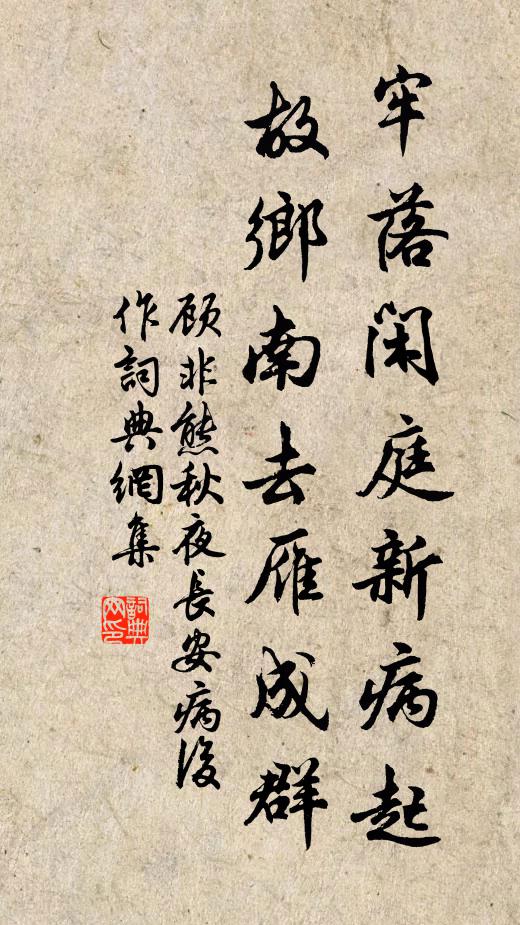 牢落閑庭新病起
故鄉南去雁成群
顾非熊秋夜長安病後
作詞典網集
詞典
网印